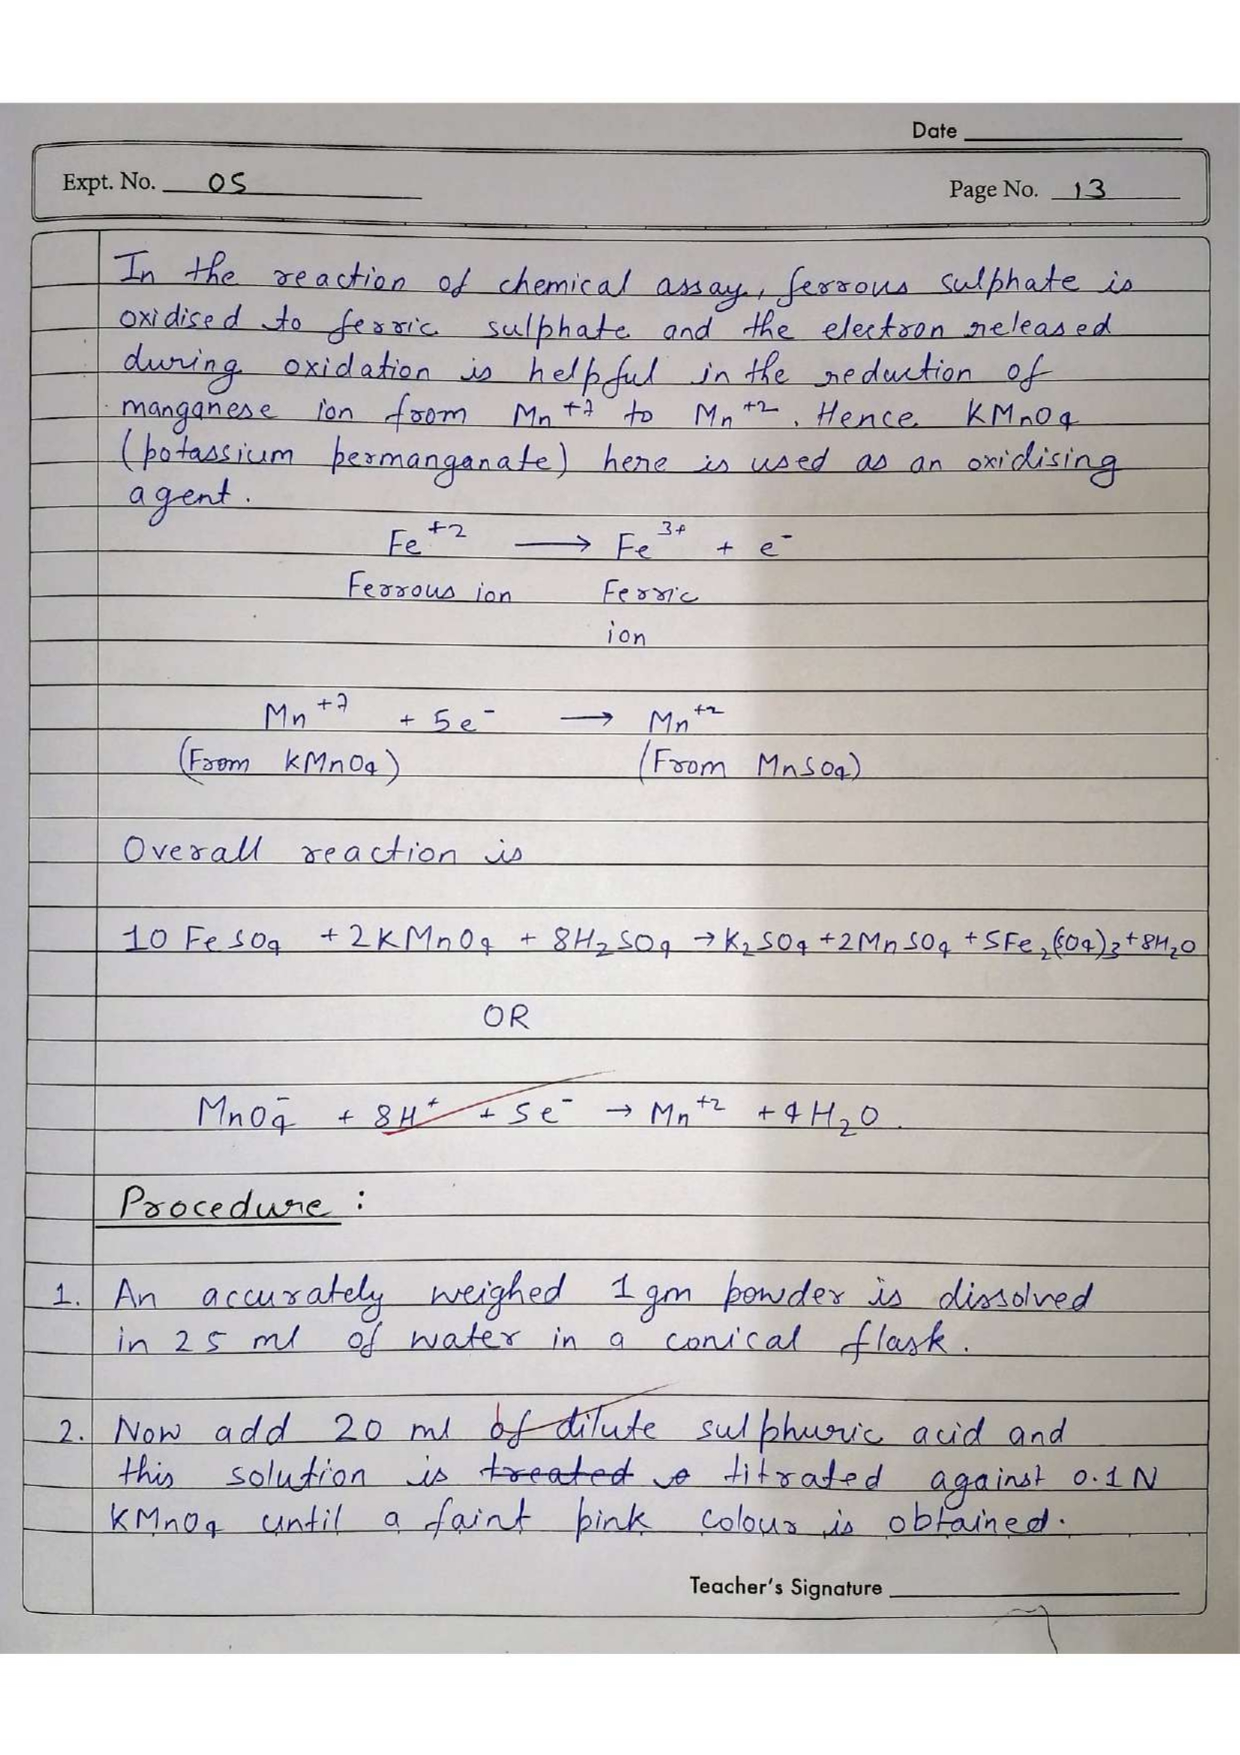 Date
Expt. No. 05
Page No. 13
In the reaction of chemical assay, ferrous sulphate is
oxidised to ferric sulphate and the electron released
during oxidation is helpful in the reduction of
manganese ion from Mn⁺⁷ to Mn⁺². Hence KMnO₄
(potassium permanganate) here is used as an oxidising
agent.
Fe⁺² → Fe³⁺ + e⁻
Ferrous ion Ferric
ion
Mn⁺⁷ + 5e⁻ → Mn⁺²
(From KMnO₄) (From MnSO₄)
Overall reaction is
10 FeSO₄ + 2KMnO₄ + 8H₂SO₄ → K₂SO₄ + 2MnSO₄ + 5Fe₂(SO₄)₃ + 8H₂O
OR
MnO₄⁻ + 8H⁺ + 5e⁻ → Mn⁺² + 4H₂O.
Procedure :
1. An accurately weighed 1 gm powder is dissolved
in 25 ml of water in a conical flask.
2. Now add 20 ml of dilute sulphuric acid and
this solution is treated titrated against 0.1N
KMnO₄ until a faint pink colour is obtained.
Teacher's Signature